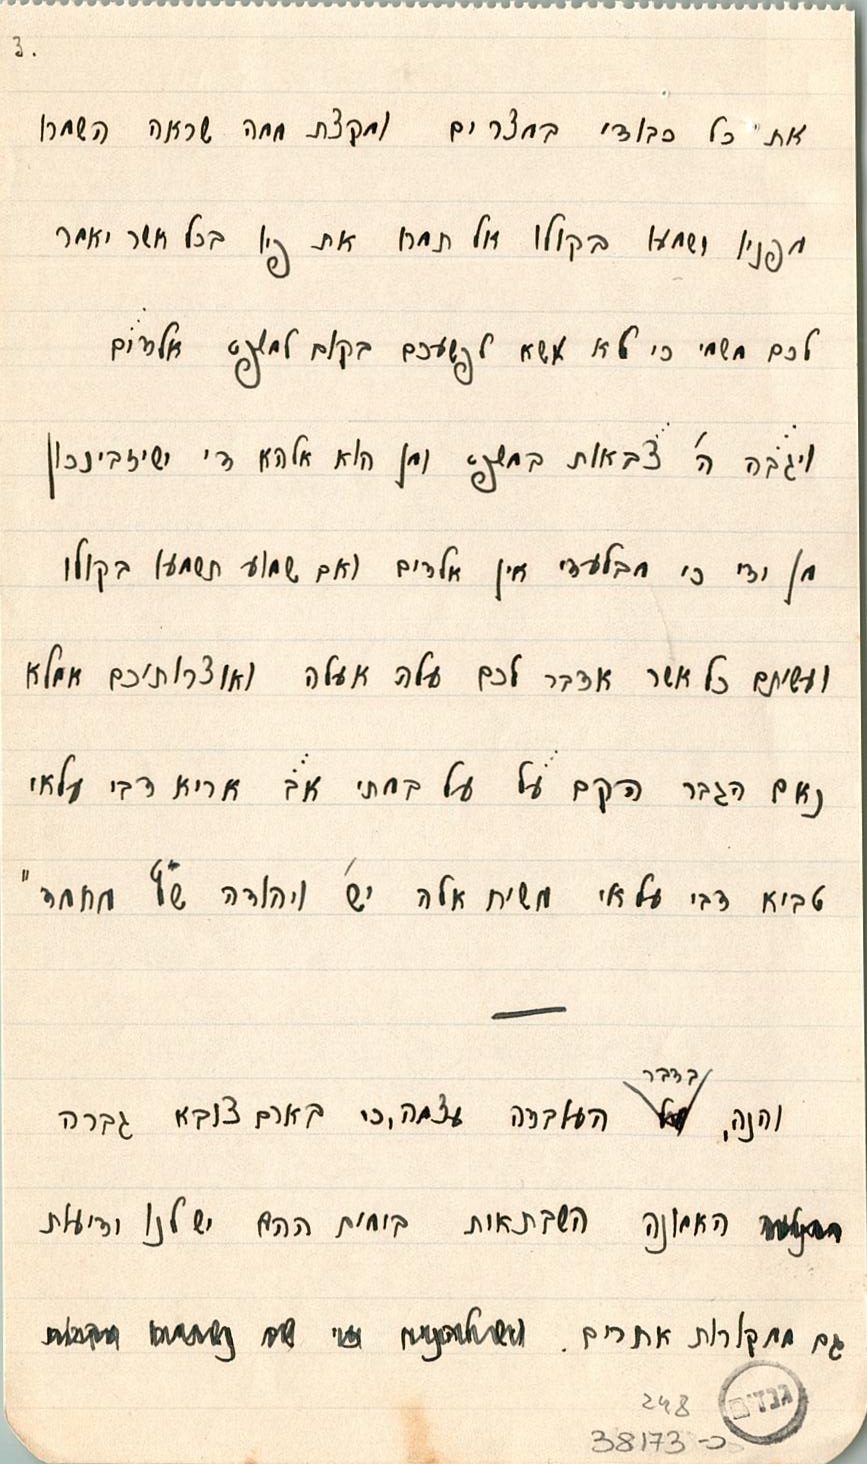 3.
את כל כבודי במצרים ומקצת ממה שראה השמרו
מפניו ושמעו בקולו אל תמרו את פיו בכל אשר יאמר
לכם משמי כי לא אשא לפשעכם בקום למשפט אלהים
ויגבה ה' צבאות במשפט ומן הוא אלהא די ישיזבינכון
מן ידי כי מבלעדי אין אלהים ואם שמוע תשמעו בקולו
ועשיתם כל אשר אדבר לכם עלה אעלה ואוצרותיכם אמלא
נאם הגבר הקם על על במתי אב אריא דבי עלאי
טביא דבי עלאי משיח אלה יש' ויהודה ש"ץ מחמד"
והנה, בדבר העובדה עצמה, כי בארם צובא גברה
האמונה השבתאות בימים ההם יש לנו ודיעות
גם ממקורות אחרים.
גנזים
248
כ-38173